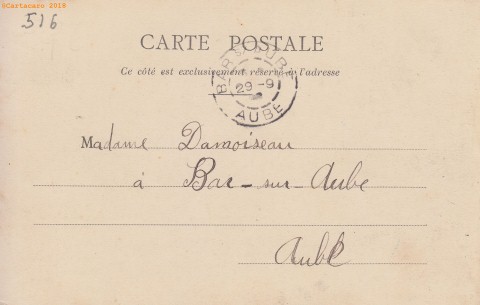 ©Cartacaro 2019
516
CARTE POSTALE
Ce côté est exclusivement réservé à l'adresse
BAR-S-AUBE
29-9
AUBE
Madame Damoiseau
à Bar-sur-Aube
Aube